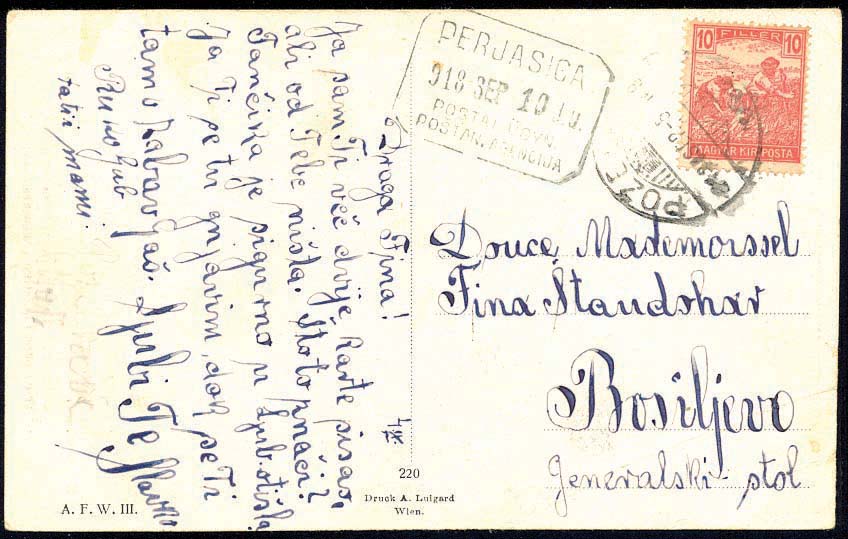 Draga Fina!
4/IX
Ja sam Ti već dvije karte pisao
ali od Tebe ništa. Što to znači?
Tančika je sigurno u Ljub. otišla
Ja Ti se tu gnjavim, dok se Ti
tamo zabavljaš. Ljubi Te Slavko
Rukoljub
tati i mami.
PERJASICA
918 SEP 10
POSTAN. AGENCIJA
10 FILLER 10
MAGYAR KIR. POSTA
Douce Mademorssel
Fina Staudohar
Bosiljevo
Generalski-stol
220
A. F. W. III.
Druck A. Luigard
Wien.